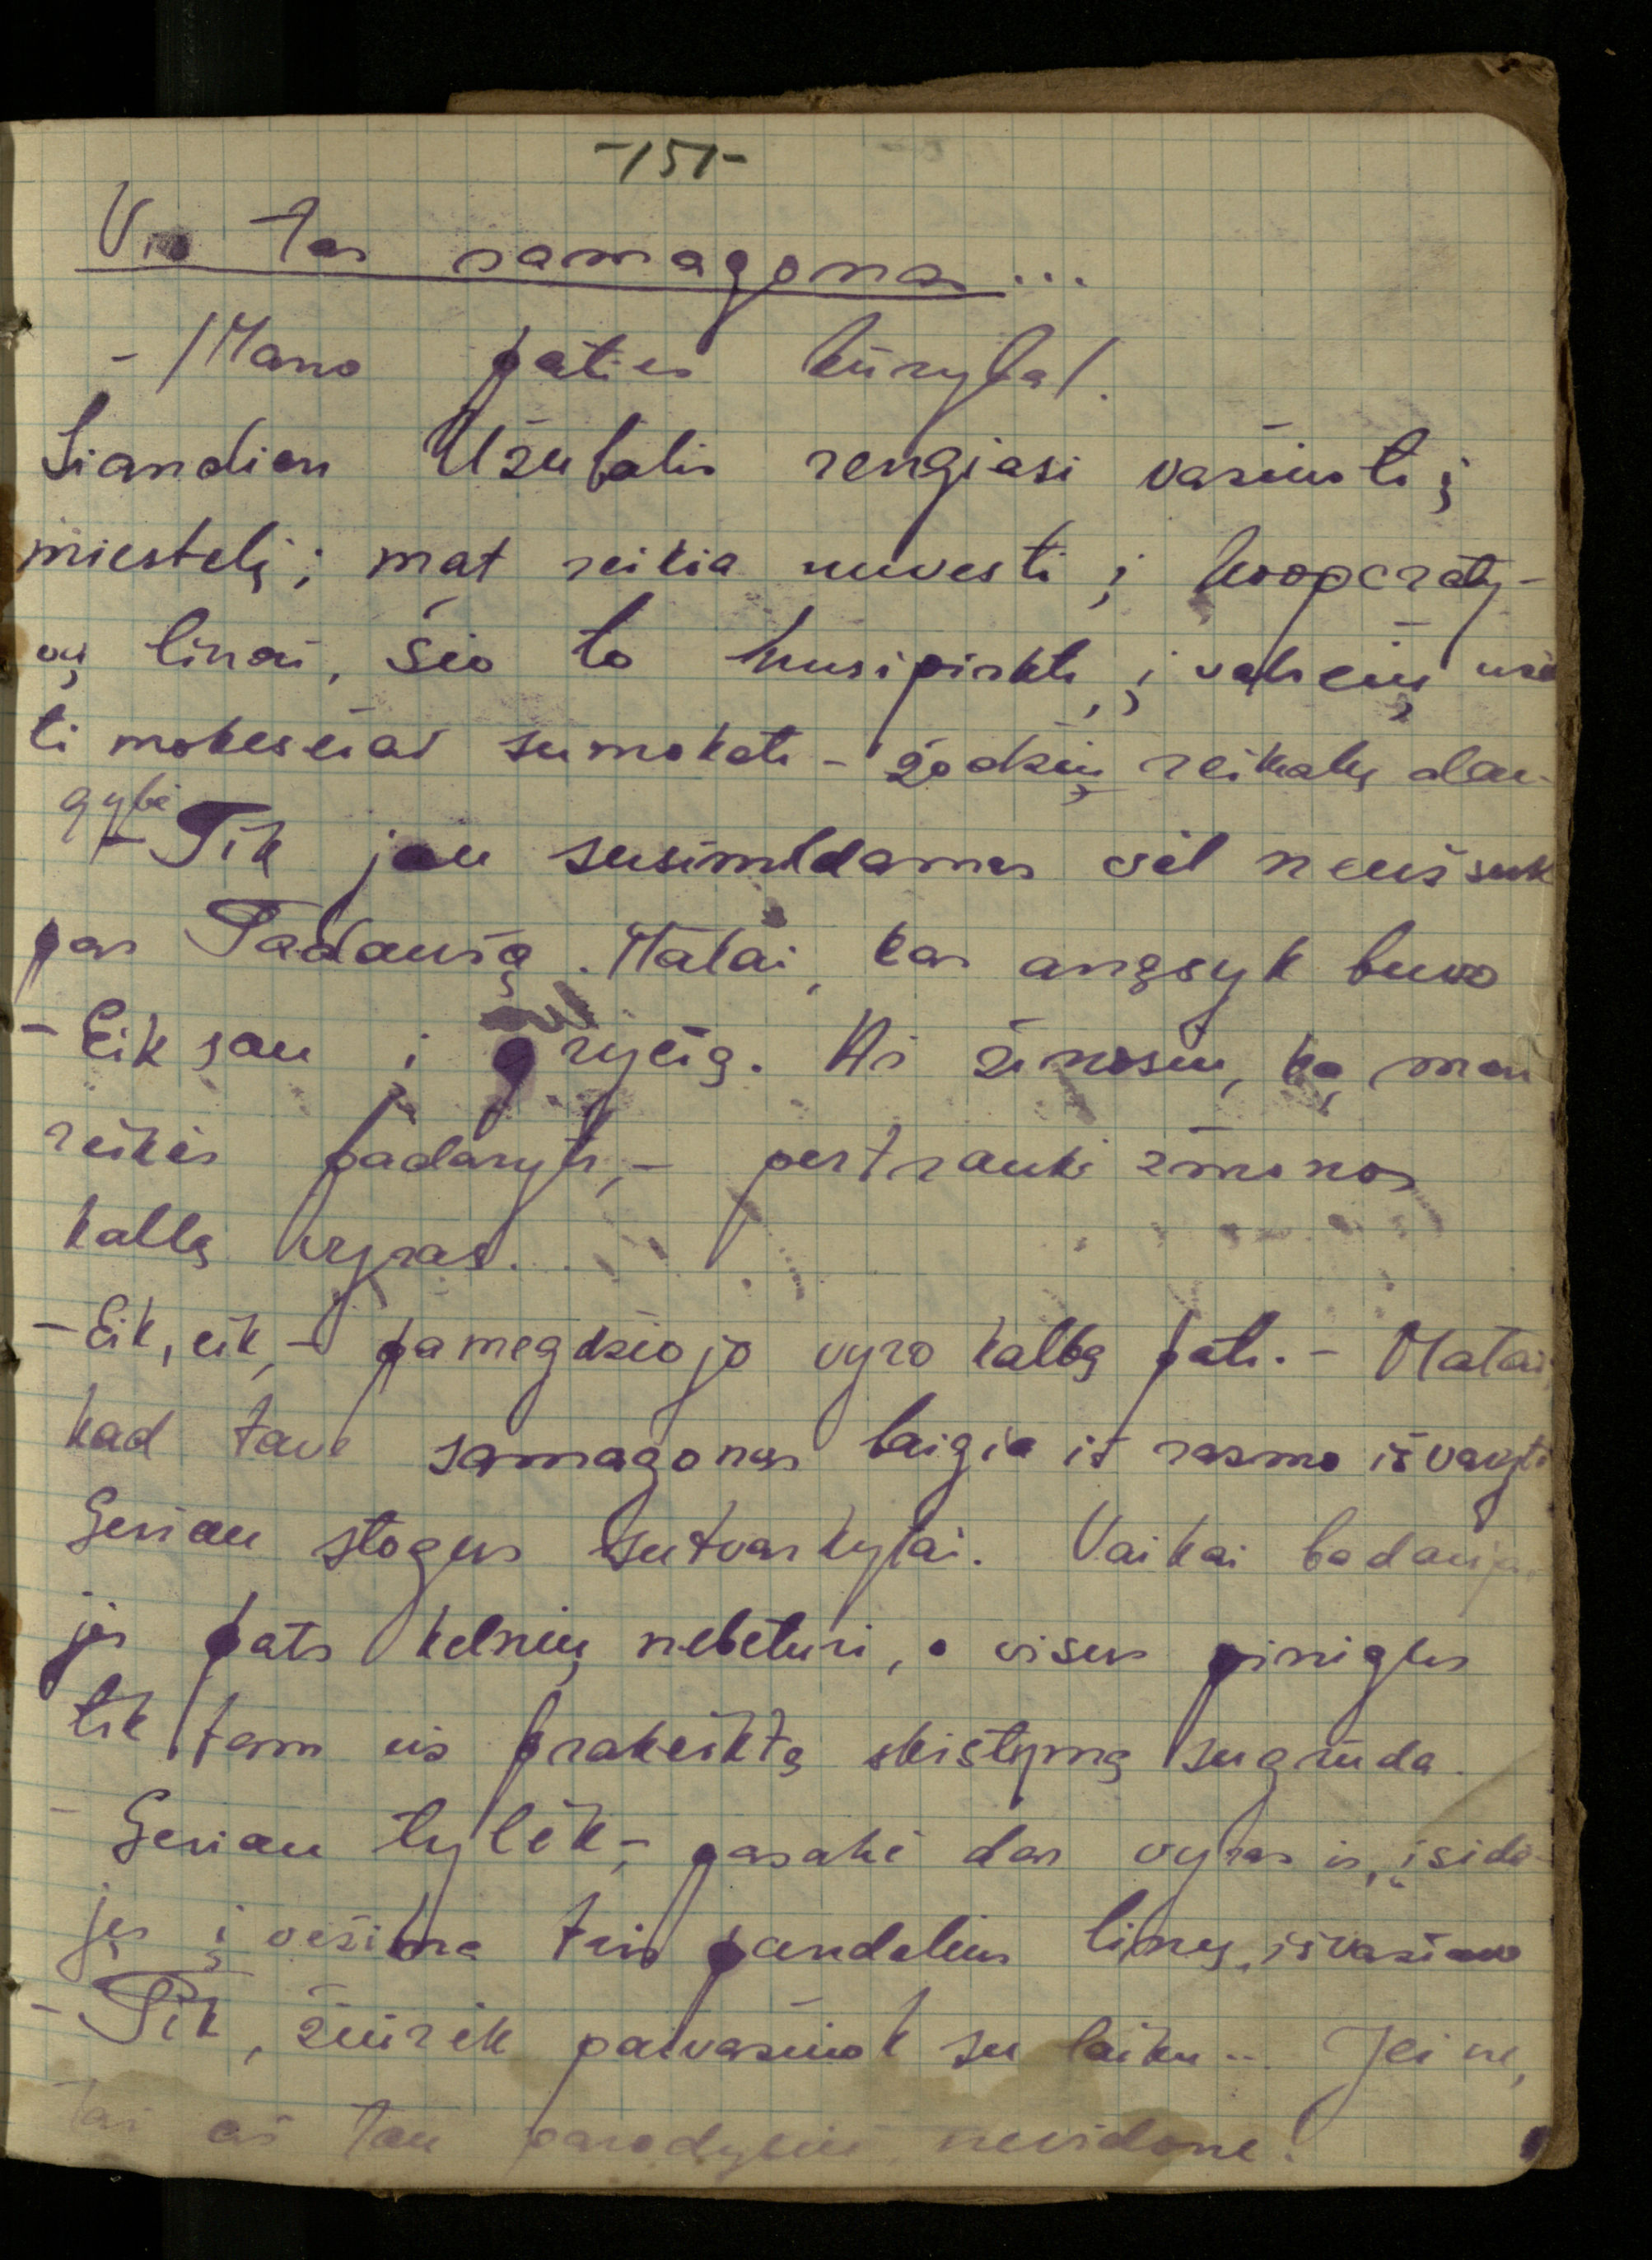 -151-
Vis tas samagonas...
- /Mano paties kūryba/.
Šiandien Užubalis rengiasi važiuoti į
miestelį; mat reikia nuvesti į kooperaty-
vą linai, šio to nusipirkti, į valsčių užei
ti mokesčiai sumokėti - žodžiu reikalų dau-
gybė
- Tik jau susimildamas vėl neužsuk
pas Tadaušą. Matai, kas angsyk buvo
- Eik jau į gryčią. Aš žinosiu, ką man
reikės padaryti, - pertraukė žmonos
kalbą vyras.
- Eik, eik, - pamegdžiojo vyro kalbą pati. - Matai,
kad tave samagonas baigia iš razmo išvaryti
Geriau stogus sutvarkytai. Vaikai badauja,
jis pats kelnių nebeturi, o visus pinigus
tik tam už prakeiktą skistymą sugrūda.
- Geriau tylėk, - pasakė dar vyras ir, įsidė-
jęs į vežimą tris pundelius linų, išvažiavo
- Tik, žiūrėk parvažiuok su laiku... Jei ne,
tai aš tau parodysiu nevidone!